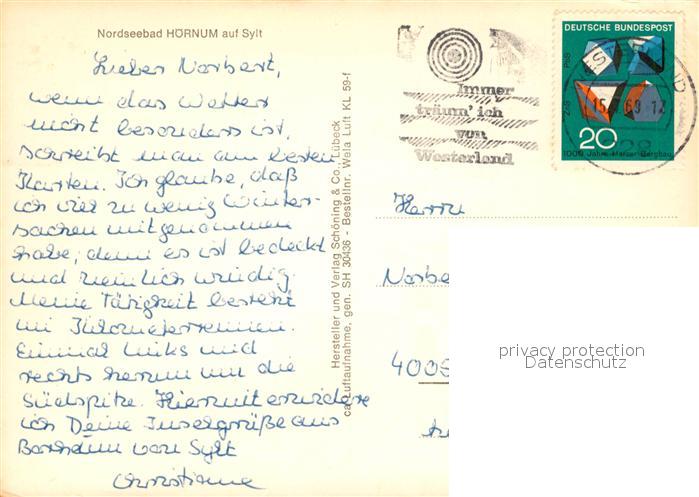 Nordseebad HÖRNUM auf Sylt
Lieber Norbert,
wenn das Wetter
nicht besonders ist,
schreibt man am besten
Karten. Ich glaube, daß
ich viel zu wenig Winter-
sachen mitgenommen
habe, denn es ist bedeckt
und ziemlich windig.
Meine Tätigkeit besteht
im Kilometerrennen.
Einmal links und
rechts herum um die
Südspitze. Hiermit erwidere
ich Deine Inselgrüße aus
Borkum von Sylt
Christiane
Hersteller und Verlag Schöning & Co., Lübeck
ca. Luftaufnahme, gen. SH 30436 - Bestellnr. Wella Luft KL 59-f
Immer
träum' ich
von
Westerland
DEUTSCHE BUNDESPOST
PbS
ZnS
20
1000 Jahre Harzer Bergbau
Herrn
Norbe
4005
privacy protection
Datenschutz